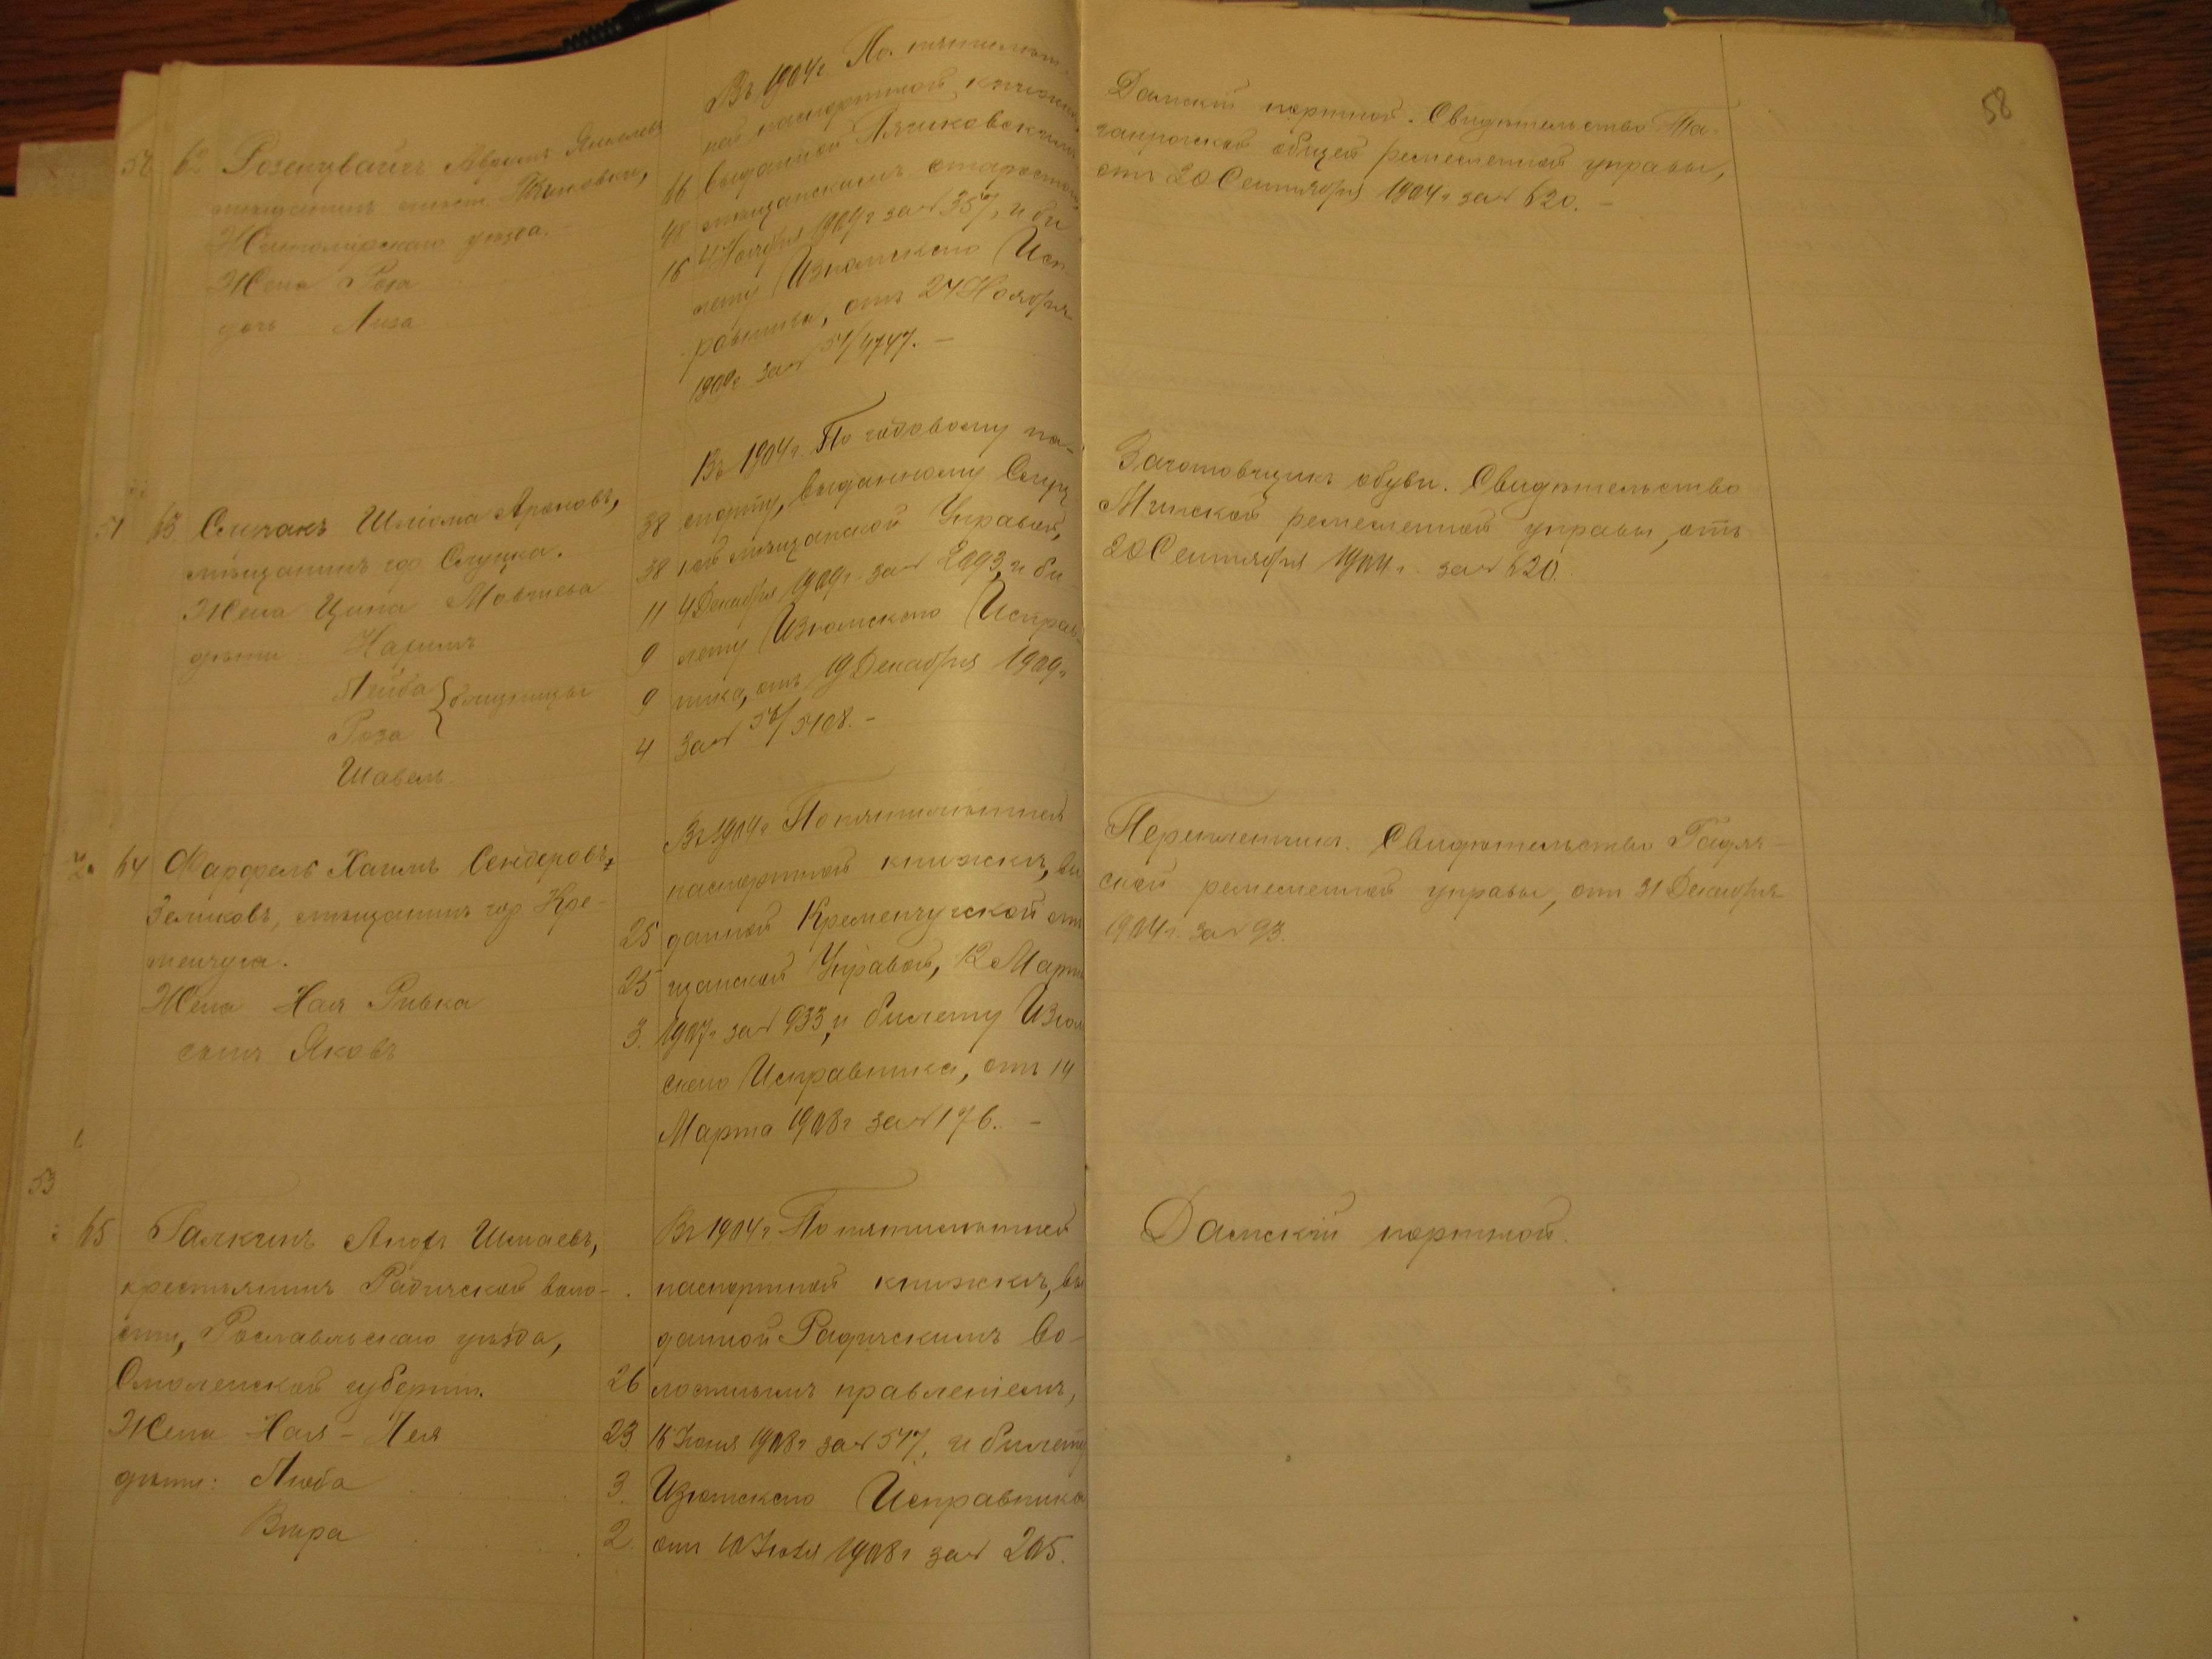 58
50 62 Розенцвайгъ Аврумъ Янкелевъ
мѣщанинъ мѣст.
Житомірскаго уѣзда. -
Жена Роза
дочь Лиза
66
48
16
Въ 1904 г. По пятилѣт-
ней паспортной книжкѣ
выданной
мѣщанскимъ старостою
4 Ноября 1909 г за № 357, и би-
лету Изюмскаго Исп-
равника, отъ 24 Ноября
1909 г за № 54/4747. -
Дамскій портной. Свидѣтельство Та-
ганрогской общей ремесленной управы,
отъ 20 Сентября 1904 г за № 620. -
51 63 Слугакъ Шліома Ароновъ,
мѣщанинъ гор Слуцка.
Жена Ципа Мовшева
дѣти Нахимъ
Лейба } близнецы
Роза
Шавель.
38
38
11
9
9
4
Въ 1904 г. По годовому па-
спорту, выданному Слуц-
кой мѣщанской Управой,
4 Декабря 1909 г. за № 2093, и би-
лету Изюмскаго Исправ-
ника, отъ 19 Декабря 1909 г
за № 56/5408. -
Заготовщикъ обуви. Свидѣтельство
Минской ремесленной управы, отъ
20 Сентября 1904 г. за № 620.
52 64 Фарфель Хаимъ Сендеровъ
Зеликовъ, мѣщанинъ гор. Кре-
менчуга.
Жена Хая Ривка
сынъ Яковъ
25
25
3.
Въ 1904 г По пятилѣтней
паспортной книжкѣ, вы
данной Кременчугской мѣ
щанской Управой, 12 Марта
1907 г за № 933, и билету Изюм
скаго Исправника, отъ 14
Марта 1908 г за № 176. -
Переплетчикъ. Свидѣтельство Гадяч-
ской ремесленной управы, отъ 31 Декабря
1904 г. за № 93.
53
65 Галкинъ Шмаевъ,
крестьянинъ Радичской воло-
сти, Рославльскаго уѣзда,
Смоленской губерніи.
Жена Хая-Лея
дѣти: Люба
Вѣра
26
23
3.
2.
Въ 1904 г По пятилѣтней
паспортной книжкѣ, вы
данной Радичскимъ Во-
лостнымъ правленіемъ,
16 Іюня 1908 г за № 547, и билету
Изюмскаго Исправника
отъ 10 Іюля 1908 г за № 205.
Дамскій портной.